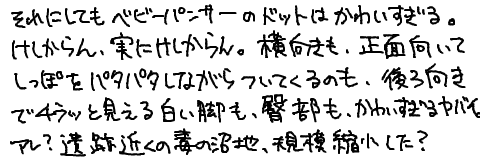 それにしてもベビーパンサーのドットはかわいすぎる。
けしからん、実にけしからん。横向きも、正面向いて
しっぽをパタパタしながらついてくるのも、後ろ向き
でチラッと見える白い脚も、臀部も、かわいすぎるヤバイ。
アレ?遺跡近くの毒の沼地、規模縮小した?